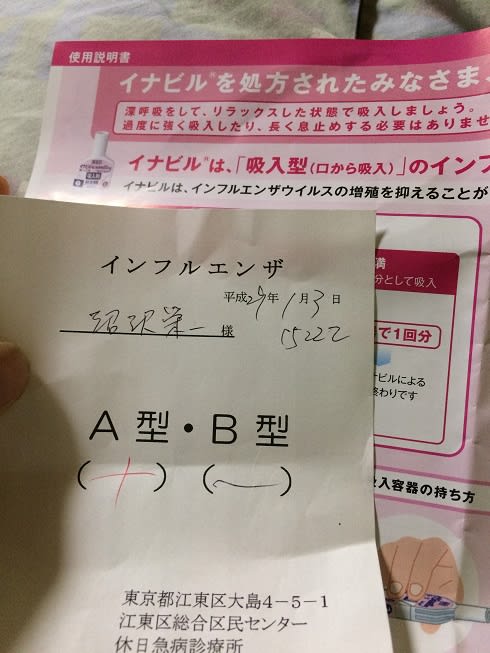 使用説明書
イナビル®を処方されたみなさま
深呼吸をして、リラックスした状態で吸入しましょう。
過度に強く吸入したり、長く息止めする必要はありませ
イナビル®は、「吸入型(口から吸入)」のインフ
イナビルは、インフルエンザウイルスの増殖を抑えることが
満
分として吸入
で1回分
ナビルによる
終わりです
入容器の持ち方
インフルエンザ
平成29年1月3日
様
15222
A型・B型
(+) (ー)
東京都江東区大島4-5-1
江東区総合区民センター
休日急病診療所